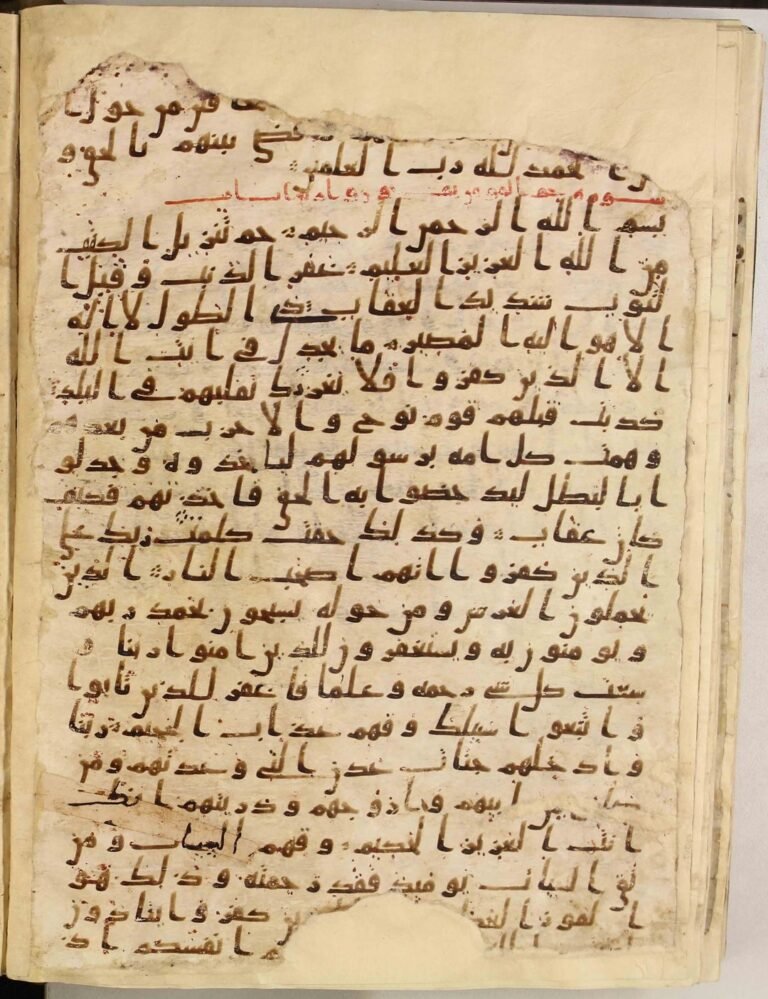 من حول ا
بينهم بالحق و
الحمد لله رب العلمين
سورة
بسم الله الرحمن الرحيم حم تنزيل الكتب
من الله العزيز العليم غفر الذنب و قبل ا
لتوب شديد العقاب ذي الطول لا اله
الا هو اليه المصير ما يجدل في ايت الله
الا الذين كفروا فلا يغررك تقلبهم في البلد
كذبت قبلهم قوم نوح و الاحزب من بعدهم
و همت كل امه برسولهم لياخذوه و جدلو
ا بالبطل ليدحضوا به الحق فاخذتهم فكيف
كان عقاب و كذلك حقت كلمت ربك على
الذين كفروا انهم اصحب النار الذين
يحملون العرش و من حوله يسبحون بحمد ربهم
و يومنون به و يستغفرون للذين امنوا ربنا و
سعت كل شي رحمه و علما فاغفر للذين تابوا
و اتبعوا سبيلك و قهم عذاب الجحيم ربنا
و ادخلهم جنات عدن التي وعدتهم و من
ابيهم و ازوجهم و ذريتهم انك
انت العزيز الحكيم و قهم السيات و من
تق السيات يوميذ فقد رحمته و ذلك هو
الفوز كفروا ينادون
انفسكم اذ